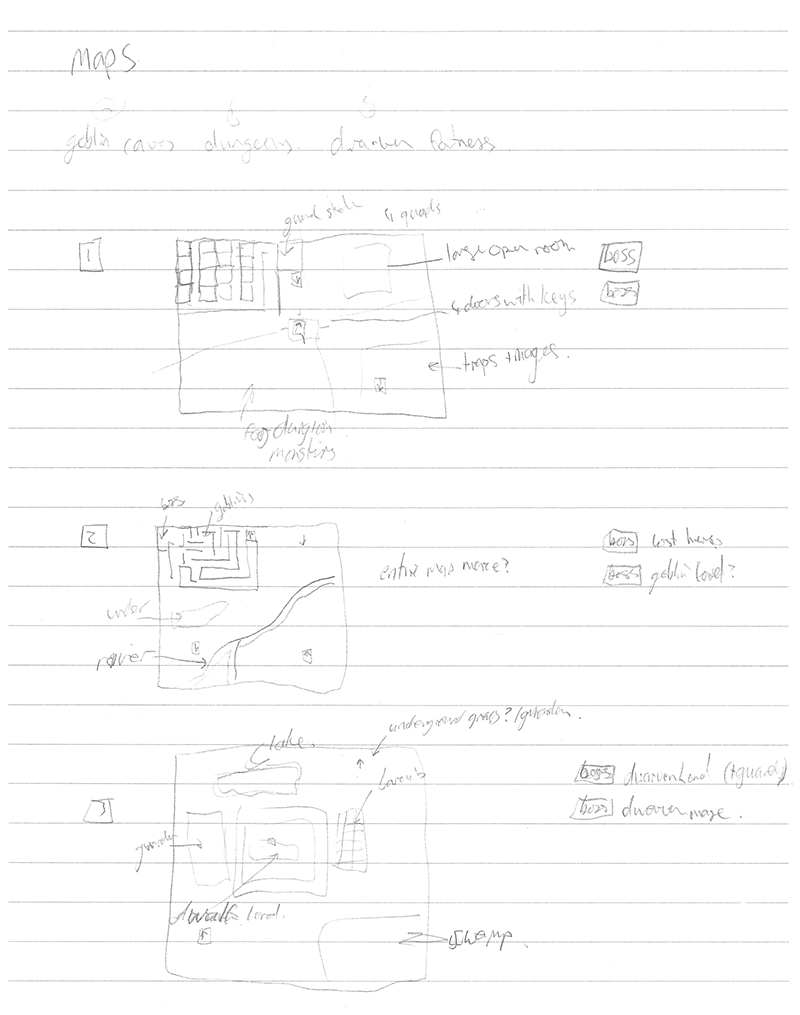 maps
goblin caves dungeons. dwarven fortress
4 guards
1
large open room
boss
boss
4 doors with keys
traps + mages.
dungeon
monsters
boss
goblins
2
boss
entire map maze?
boss goblin lord?
water
river
underground grass? /
lake.
boss dwarven lord (+guards)
3
boss dwarven mage.
dwarf lord.
swamp.